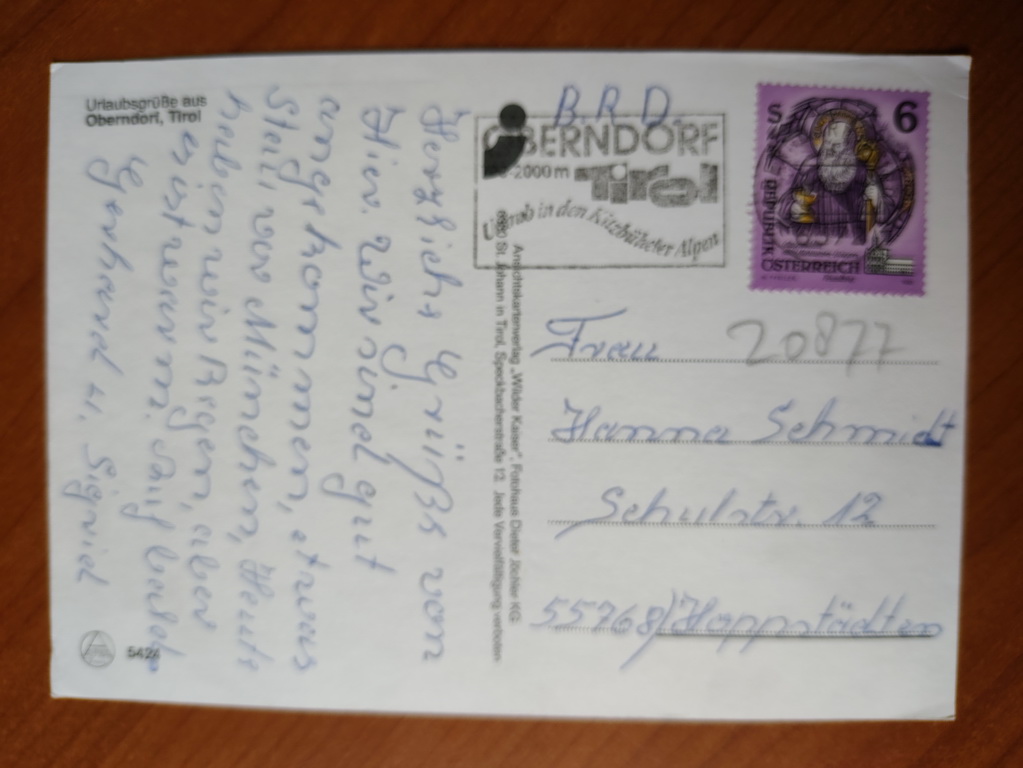 Urlaubsgrüße aus
Oberndorf, Tirol
Herzliche Grüße von
Hier. Wir sind gut
angekommen, etwas
Stau vor München, Heute
haben wir Regen, aber
es ist warm. Auf bald
Gerhard u. Sigrid
5424
Ansichtskartenverlag „Wilder Kaiser", Fotohaus Dieter Jöchler KG
6380 St. Johann in Tirol, Speckbacherstraße 12. Jede Vervielfältigung verboten
B.R.D.
OBERNDORF
-2000m Tirol
Urlaub in den Kitzbüheler Alpen
S 6
REPUBLIK
ÖSTERREICH
Frau 20877
Hanna Schmidt
Schulstr. 12
55768) Hoppstädten